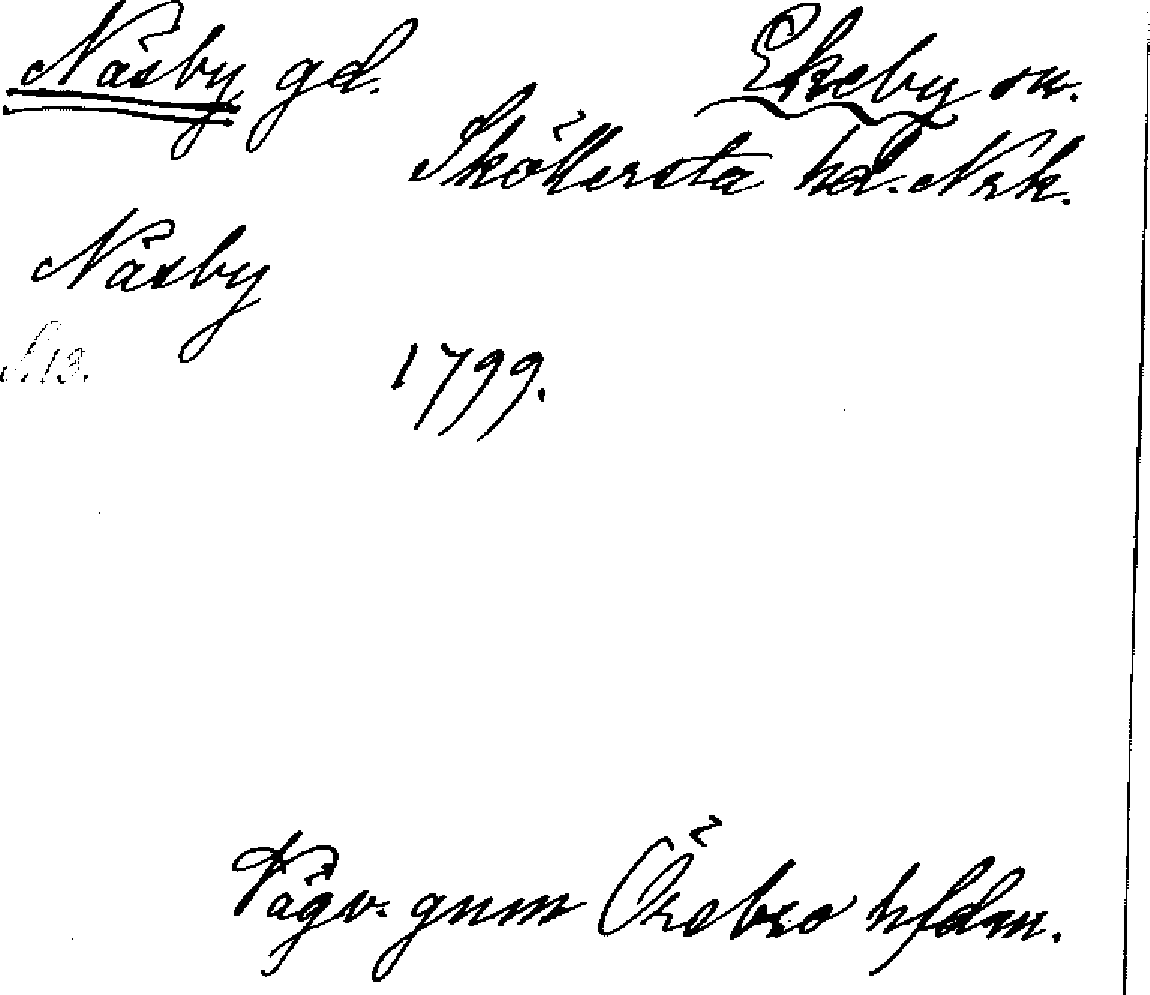 Näsby gd. Ekeby sn.
Sköllersta hd. Nrk.
Näsby
S. 13.
1799.
Vägv. gnm Örebro hfdm.